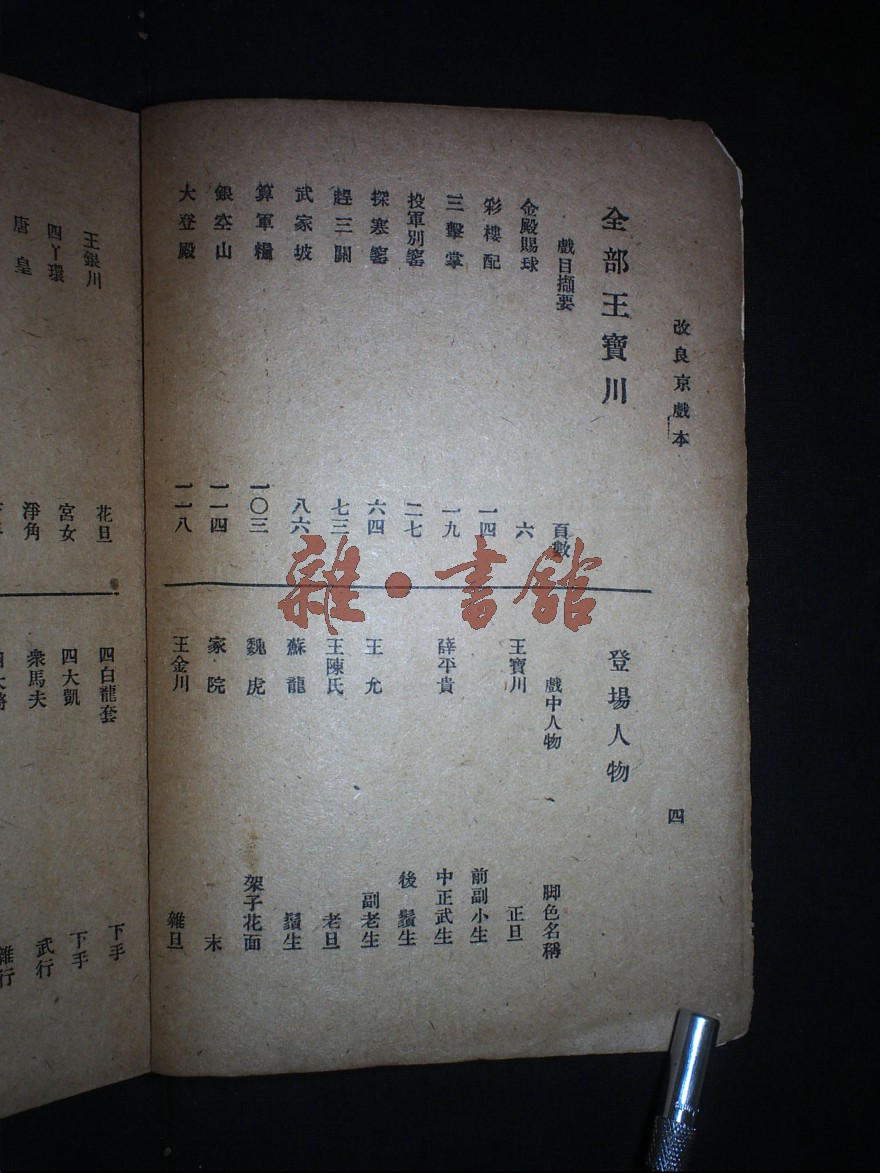 改良京戲本
四
全部王寶川
戲目擷要
頁數
金殿賜球
六
彩樓配
一四
三擊掌
一九
投軍別窰
二七
探寒窰
六四
趕三關
七三
武家坡
八六
算軍糧
一〇三
銀空山
一一四
大登殿
一一八
登場人物
戲中人物
脚色名稱
王寶川
正旦
薛平貴
前副小生
中正武生
後鬚生
王允
副老生
王陳氏
老旦
蘇龍
鬚生
魏虎
架子花面
家院
末
王金川
雜旦
王銀川
花旦
四丫環
宮女
唐皇
淨角
四白龍套
下手
四大凱
下手
衆馬夫
武行
雜行
雜·書館